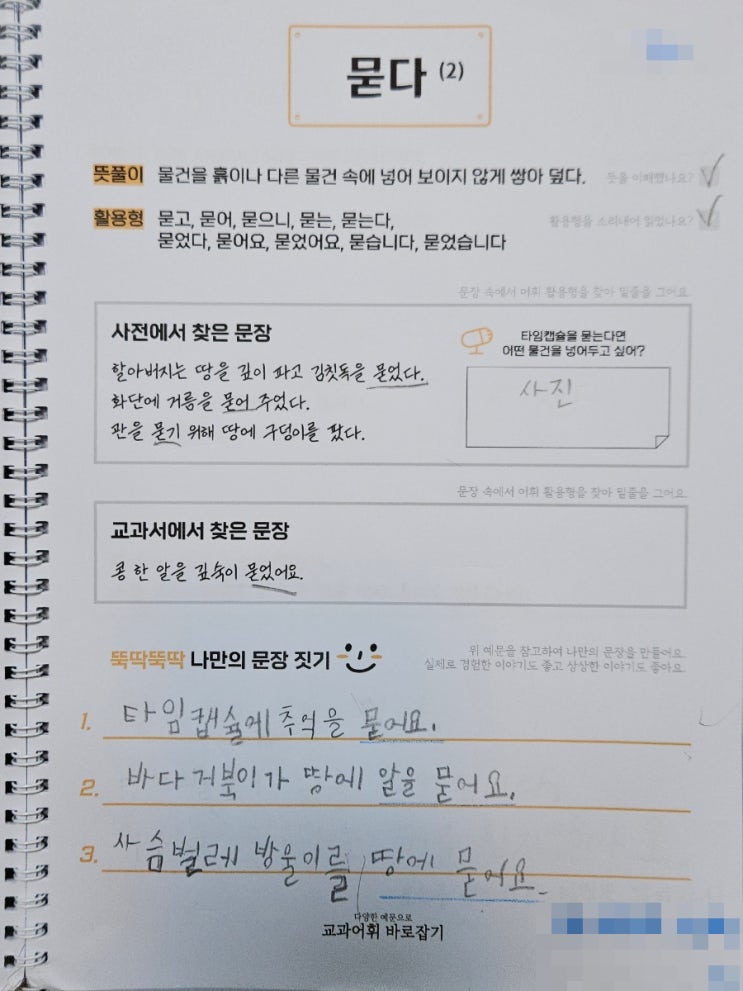 묻다 (2)
뜻풀이 물건을 흙이나 다른 물건 속에 넣어 보이지 않게 쌓아 덮다.
뜻을 이해했나요?
활용형 묻고, 묻어, 묻으니, 묻는, 묻는다,
활용형을 소리내어 읽었나요?
묻었다, 묻어요, 묻었어요, 묻습니다, 묻었습니다
문장 속에서 어휘 활용형을 찾아 밑줄을 그어요.
사전에서 찾은 문장
할아버지는 땅을 깊이 파고 김칫독을 묻었다.
화단에 거름을 묻어 주었다.
관을 묻기 위해 땅에 구덩이를 팠다.
타임캡슐을 묻는다면
어떤 물건을 넣어두고 싶어?
사진
문장 속에서 어휘 활용형을 찾아 밑줄을 그어요.
교과서에서 찾은 문장
콩 한 알을 깊숙이 묻었어요.
뚝딱뚝딱 나만의 문장 짓기
위 예문을 참고하여 나만의 문장을 만들어요.
실제로 경험한 이야기도 좋고 상상한 이야기도 좋아요.
1. 타임캡슐에 추억을 묻어요.
2. 바다거북이가 땅에 알을 묻어요.
3. 사슴벌레 방울이를 땅에 묻어요.
다양한 예문으로
교과어휘 바로잡기